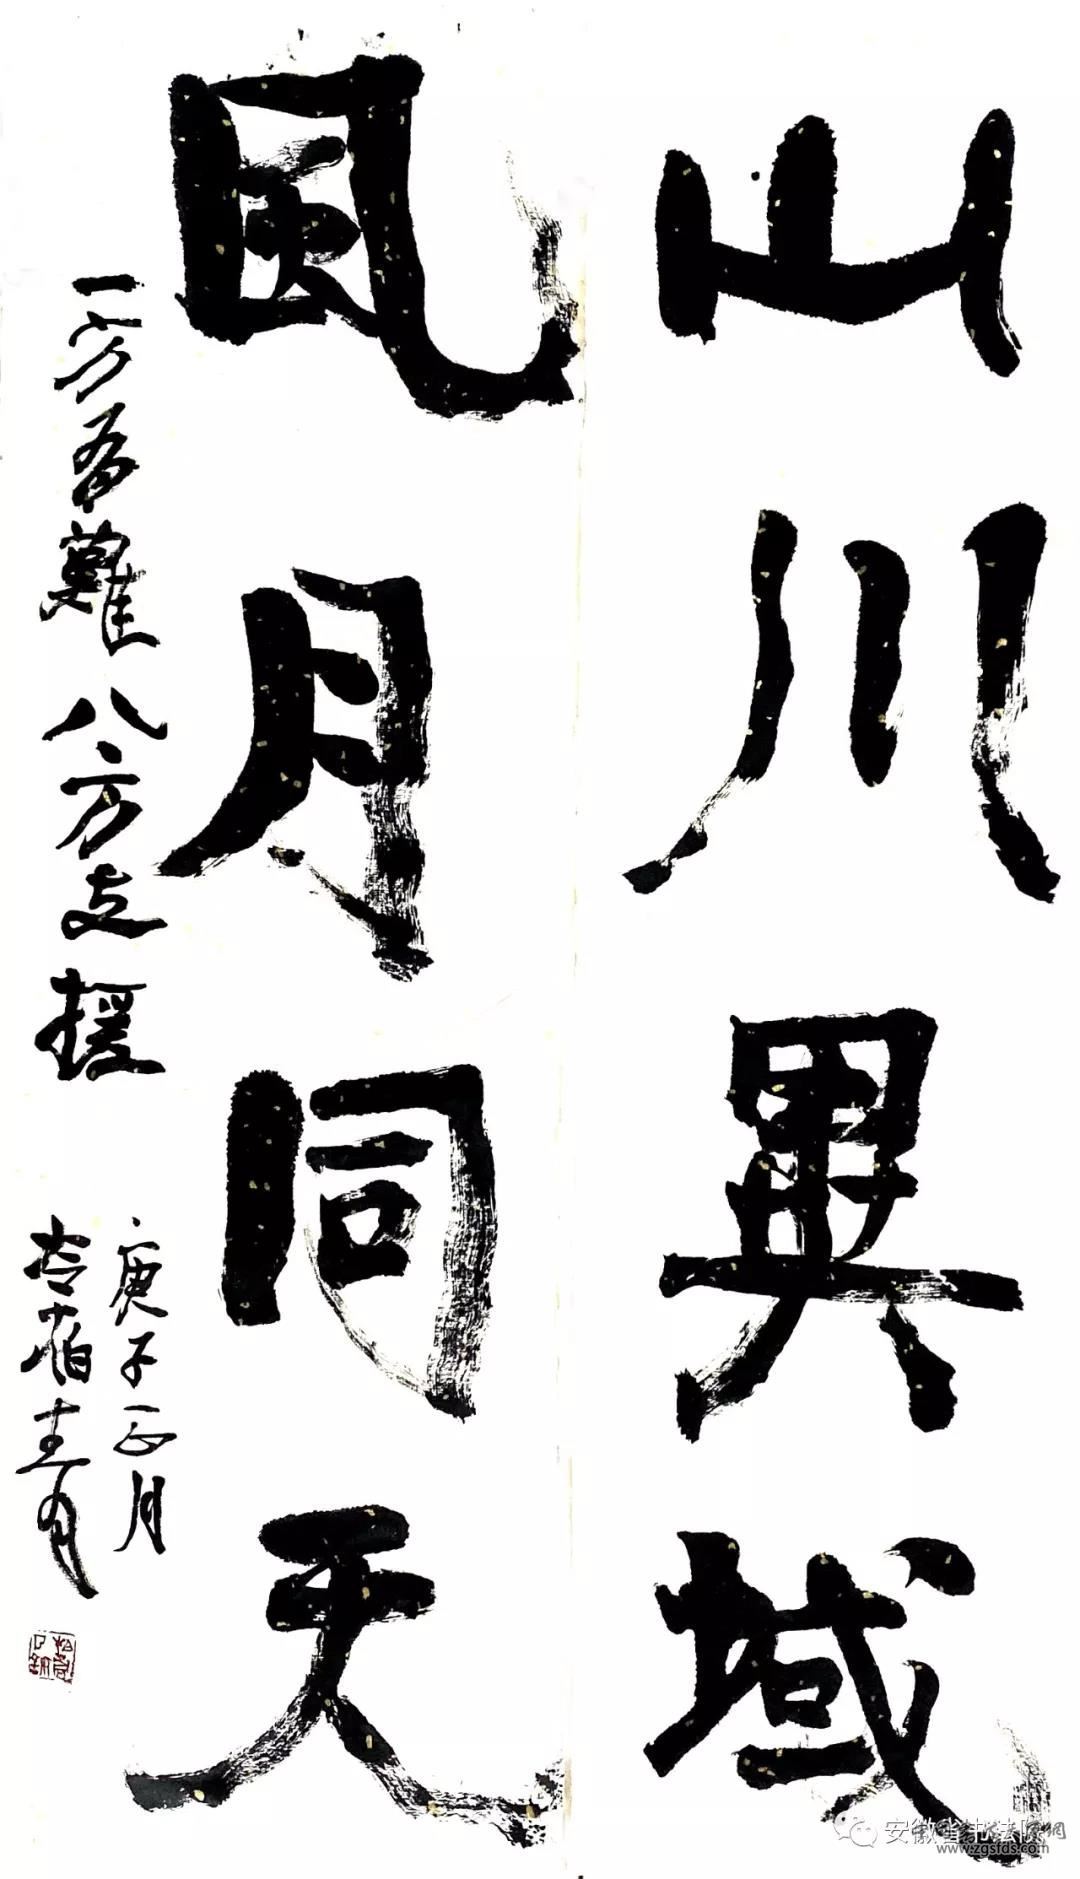 山川異域
風月同天
一方有難八方支援
庚子正月
冷柏青
www.zgsfds.com